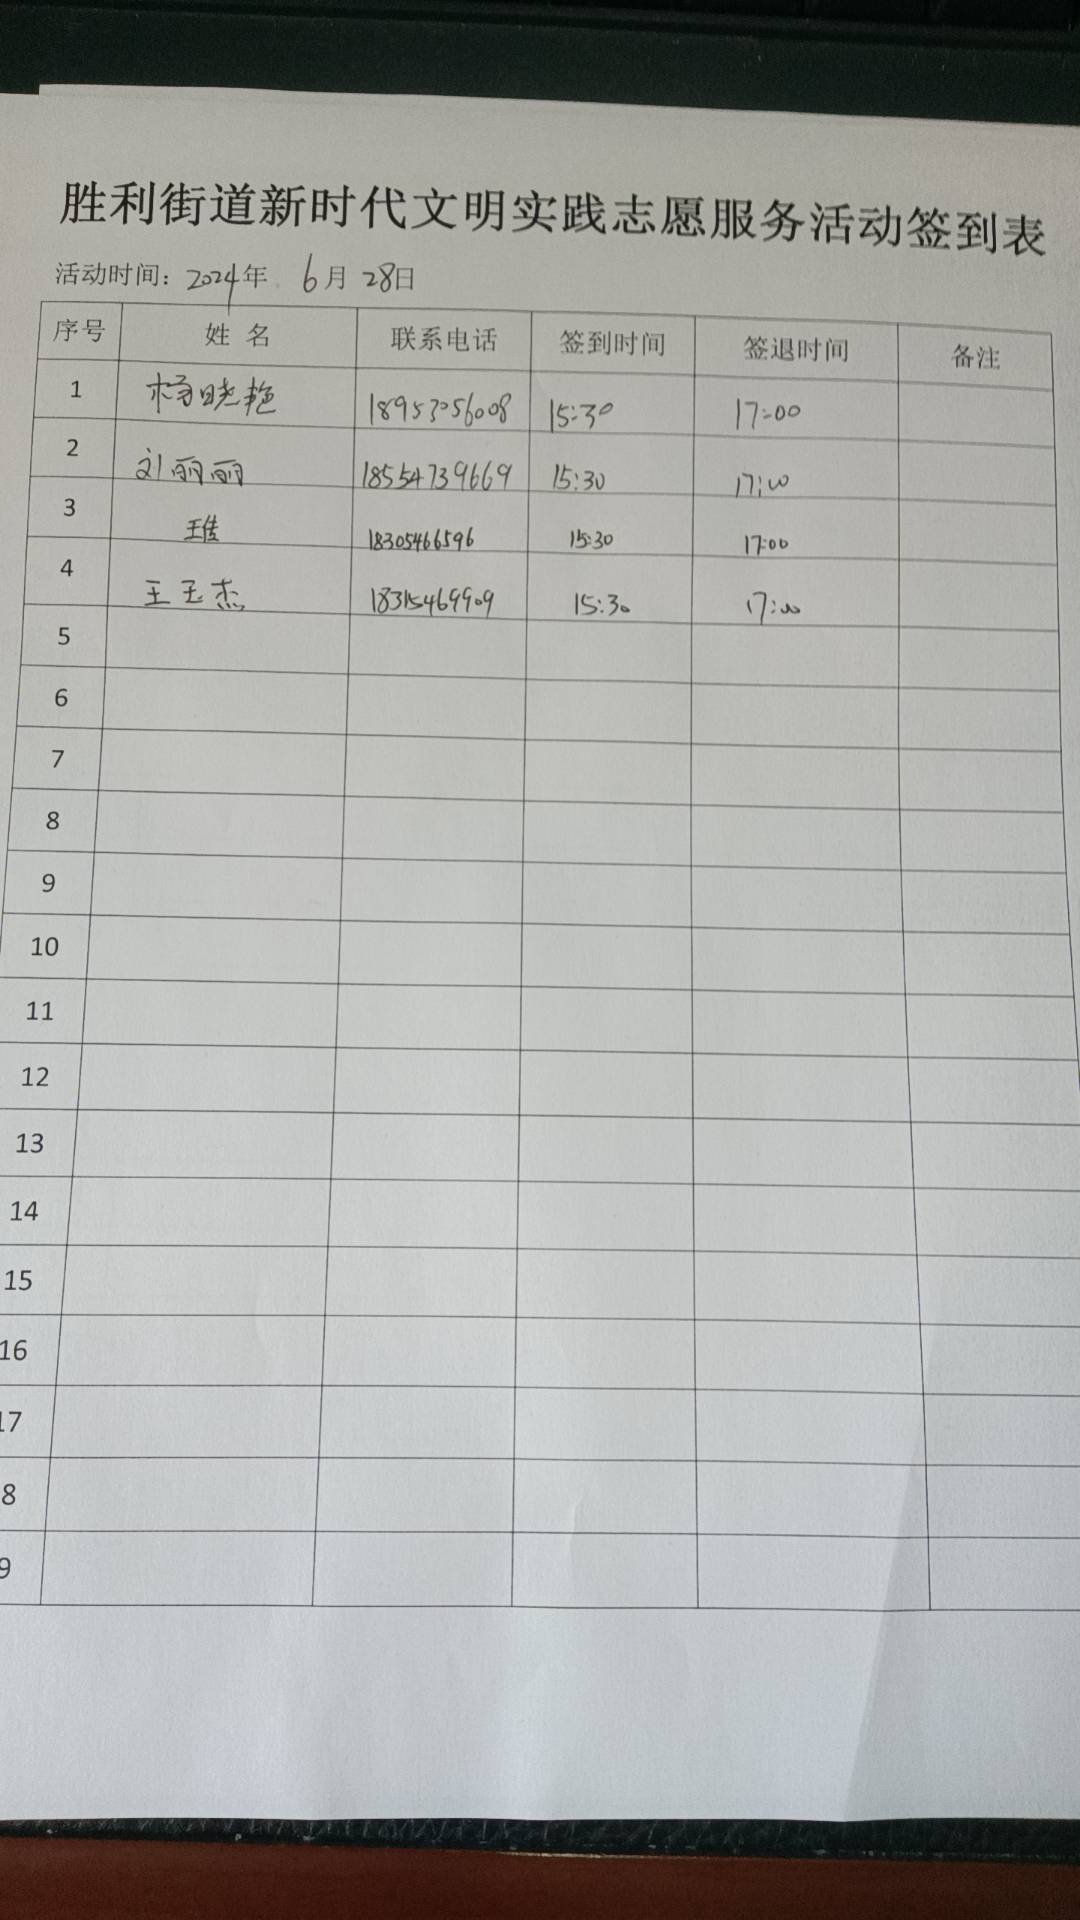 胜利街道新时代文明实践志愿服务活动签到表
活动时间：2024年 6月 28日
序号 姓名 联系电话 签到时间 签退时间 备注
1 杨晓艳 18953056008 15:30 17:00
2 刘丽丽 18554739669 15:30 17:00
3 18305466596 15:30 17:00
4 王玉杰 18315469909 15:30 17:00
5
6
7
8
9
10
11
12
13
14
15
16
17
8
9